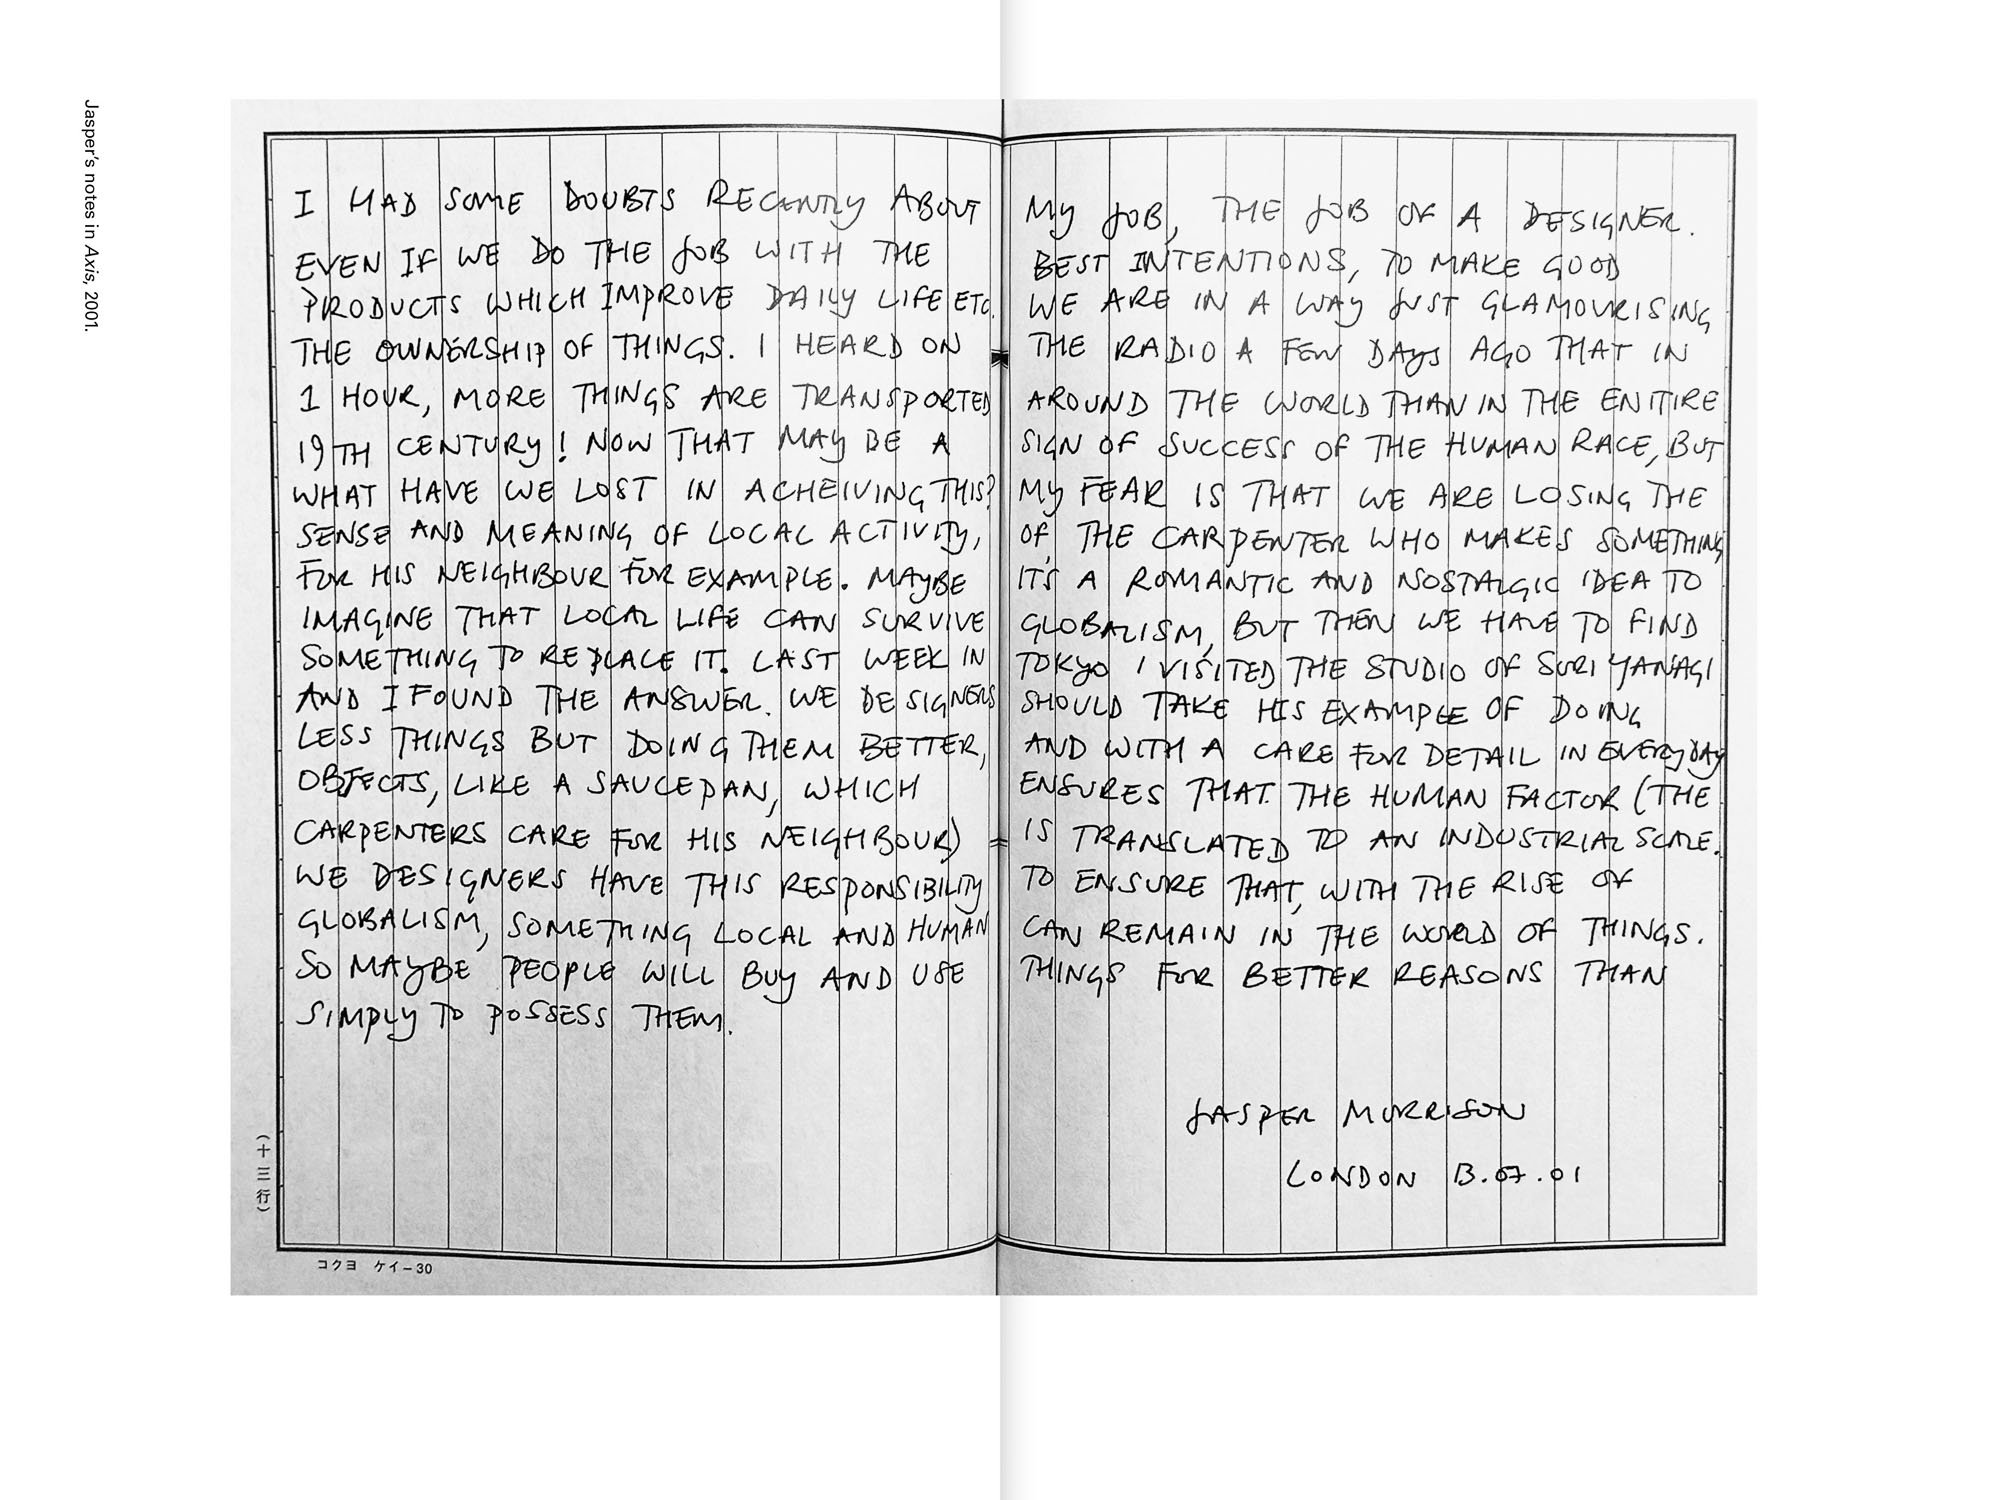 Jasper's notes in Axis, 2001.
I HAD SOME DOUBTS RECENTLY ABOUT MY JOB, THE JOB OF A DESIGNER.
EVEN IF WE DO THE JOB WITH THE BEST INTENTIONS, TO MAKE GOOD
PRODUCTS WHICH IMPROVE DAILY LIFE ETC. WE ARE IN A WAY JUST GLAMOURISING
THE OWNERSHIP OF THINGS. I HEARD ON THE RADIO A FEW DAYS AGO THAT IN
1 HOUR, MORE THINGS ARE TRANSPORTED AROUND THE WORLD THAN IN THE ENTIRE
19TH CENTURY! NOW THAT MAY BE A SIGN OF SUCCESS OF THE HUMAN RACE, BUT
WHAT HAVE WE LOST IN ACHEIVING THIS? MY FEAR IS THAT WE ARE LOSING THE
SENSE AND MEANING OF LOCAL ACTIVITY, OF THE CARPENTER WHO MAKES SOMETHING
FOR HIS NEIGHBOUR FOR EXAMPLE. MAYBE IT'S A ROMANTIC AND NOSTALGIC IDEA TO
IMAGINE THAT LOCAL LIFE CAN SURVIVE GLOBALISM, BUT THEN WE HAVE TO FIND
SOMETHING TO REPLACE IT. LAST WEEK IN TOKYO I VISITED THE STUDIO OF SORI YANAGI
AND I FOUND THE ANSWER. WE DESIGNERS SHOULD TAKE HIS EXAMPLE OF DOING
LESS THINGS BUT DOING THEM BETTER, AND WITH A CARE FOR DETAIL IN EVERYDAY
OBJECTS, LIKE A SAUCEPAN, WHICH ENSURES THAT THE HUMAN FACTOR (THE
CARPENTERS CARE FOR HIS NEIGHBOUR) IS TRANSLATED TO AN INDUSTRIAL SCALE.
WE DESIGNERS HAVE THIS RESPONSIBILITY TO ENSURE THAT, WITH THE RISE OF
GLOBALISM, SOMETHING LOCAL AND HUMAN CAN REMAIN IN THE WORLD OF THINGS.
SO MAYBE PEOPLE WILL BUY AND USE THINGS FOR BETTER REASONS THAN
SIMPLY TO POSSESS THEM.
JASPER MORRISON
LONDON 13.07.01
(十三行)
コクヨ ケイ−30